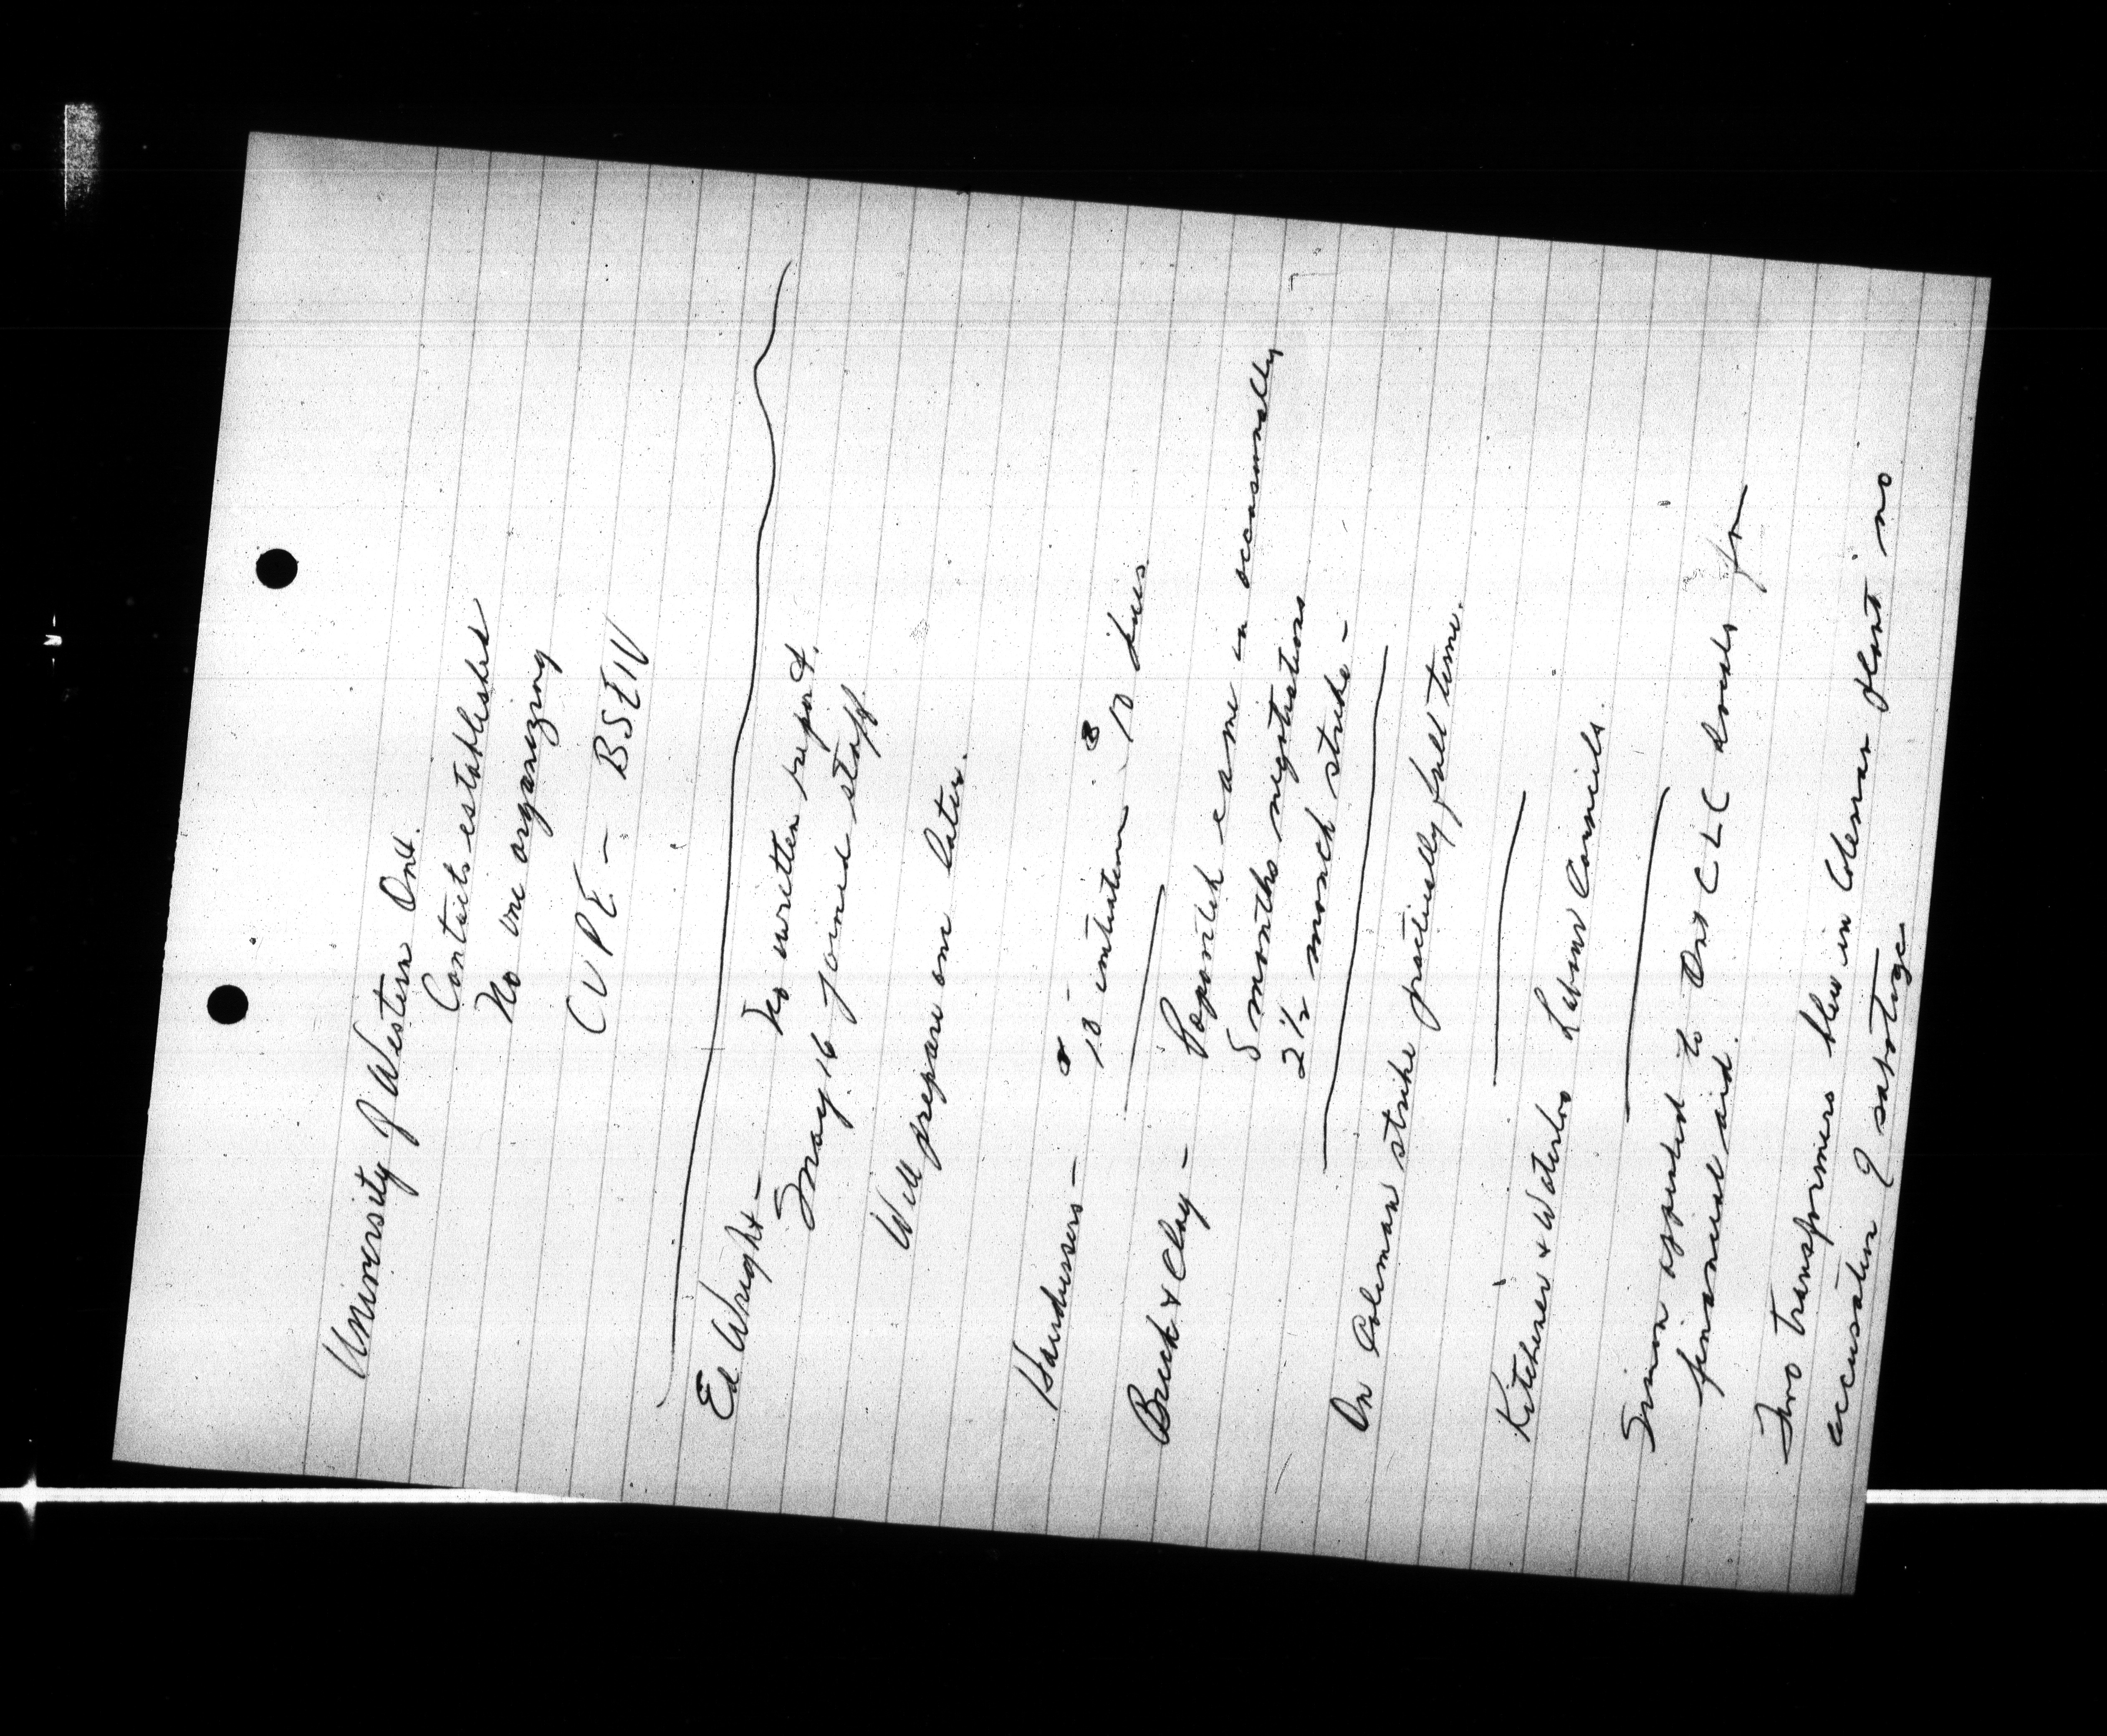 University of Western Ont.
Contacts established
No one organizing
CUPE - BSEIU
Ed Wright -
No written report.
May 16 joined staff.
Will prepare one later.
10 initiation 10 dues
Brick & Clay -
came in occasionally
5 months negotiations
2 1/2 month strike -
On Coleman strike practically full time.
Kitchener & Waterloo Labour Councils.
Simon appealed to Ont CLC locals for
financial aid.
Two transformers blew in Coleman plant no
accusation of sabotage